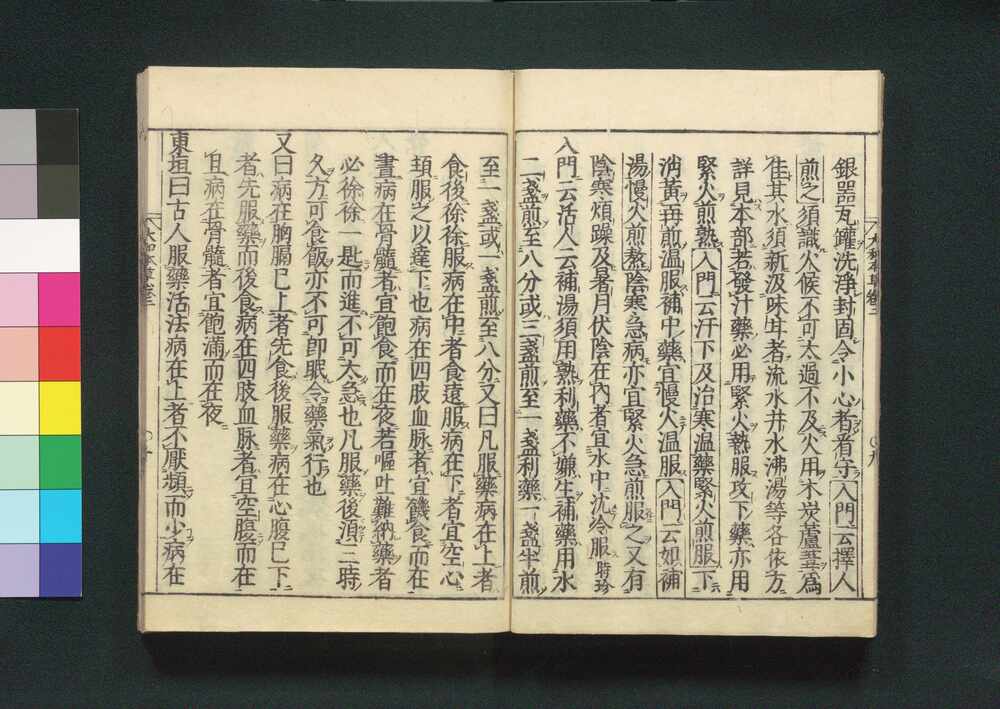 銀器瓦罐洗淨封固令小心者看守入門云擇人
煎之須識火候不可太過不及火用木炭蘆葦爲
佳其水須新汲味甘者流水井水沸湯等各依方
詳見本部若發汗藥必用緊火熱服攻下藥亦用
緊火煎熟入門云汗下及治寒温藥緊火煎服下
消黃再煎温服補中藥宜慢火温服入門云如補
湯慢火煎熬陰寒急病亦宜緊火急煎服之又有
陰寒煩躁及暑月伏陰在內者宜水中沈冷服時珍
入門云活人云補湯須用熟利藥不嫌生補藥用水
二盞煎至八分或三盞煎至一盞利藥一盞半煎
至一盞或一盞煎至八分又曰凡服藥病在上者
食後徐徐服病在中者食遠服病在下者宜空心
頓服之以達下也病在四肢血脉者宜饑食而在
晝病在骨髓者宜飽食而在夜若嘔吐難納藥者
必徐徐一匙而進不可太急也凡服藥後須三時
久方可食飯亦不可卽眠令藥氣行也
又曰病在胸膈已上者先食後服藥病在心腹已下
者先服藥而後食病在四肢血脉者宜空腹而在
旦病在骨髓者宜飽滿而在夜
東垣曰古人服藥活法病在上者不厭頻而少病在